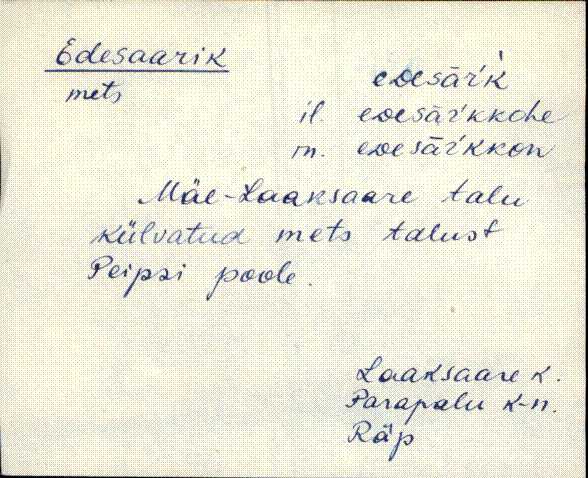 Edesaarik
mets
eᴅesāŕik
il. eᴅesāŕikkohe
in. eᴅesāŕikkon
Mäe-Laaksaare talu
külvatud mets talust
Peipsi poole.
Laaksaare k.
Parapalu k-n.
Räp